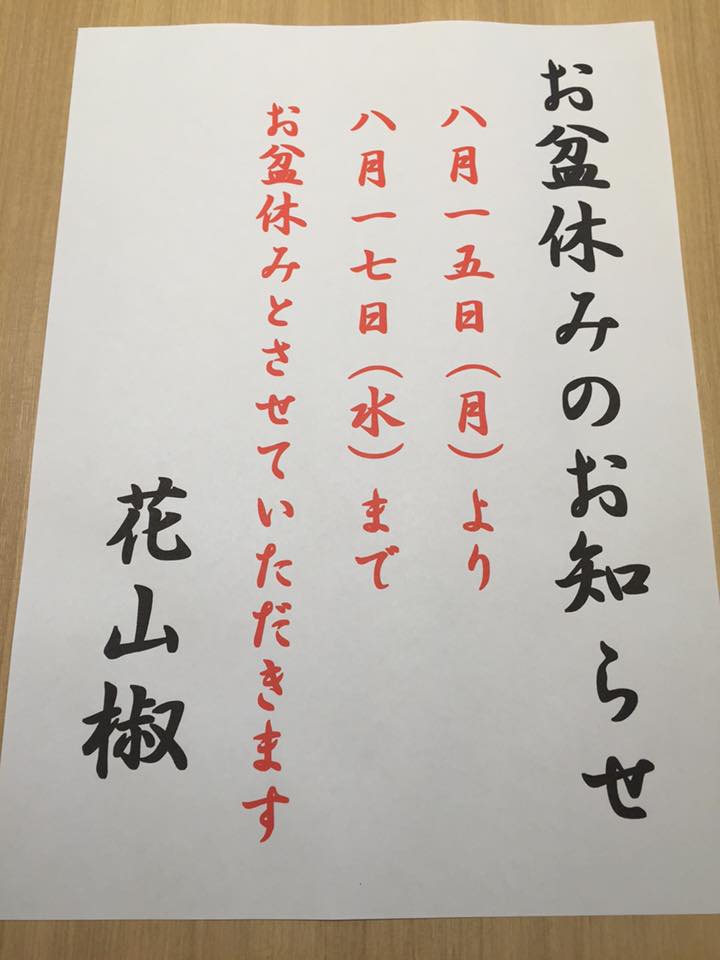 お盆休みのお知らせ
八月一五日(月)より
八月一七日(水)まで
お盆休みとさせていただきます
花山椒